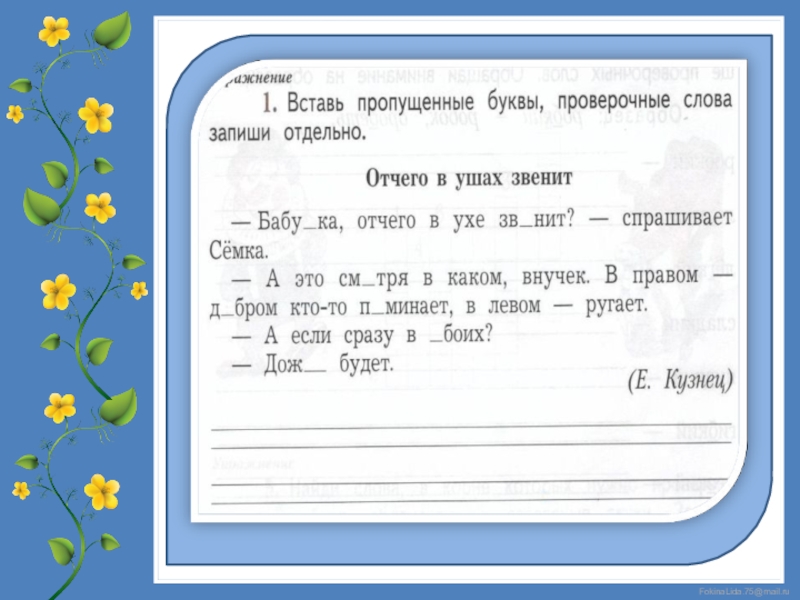 ражнение
1. Вставь пропущенные буквы, проверочные слова
запиши отдельно.
Отчего в ушах звенит
— Бабу_ка, отчего в ухе зв_нит? — спрашивает
Сёмка.
— А это см_тря в каком, внучек. В правом —
д_бром кто-то п_минает, в левом — ругает.
— А если сразу в _боих?
— Дож__ будет.
(Е. Кузнец)
FokinaLida.75@mail.ru